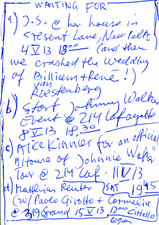 WAITING FOR
a) J.S. @ her house in
Cresent Lane, New Paltz
4 V 13 18:00 (and then
we crashed the wedding
of Billiam + Rene!)
van
Kloesterberg
b) Start Johnny Walker
Event @ 214 Lafayette
8 V 13 18.30
c) Alice Kinnier for an official
"House of Johnnie Walker"
Tour @ 214 Laf. 11 V 13
d) Matthias Reuter SAT 1945
(w/ Paolo Girotto + Cornelia
@ 319 Grand 15 V 13